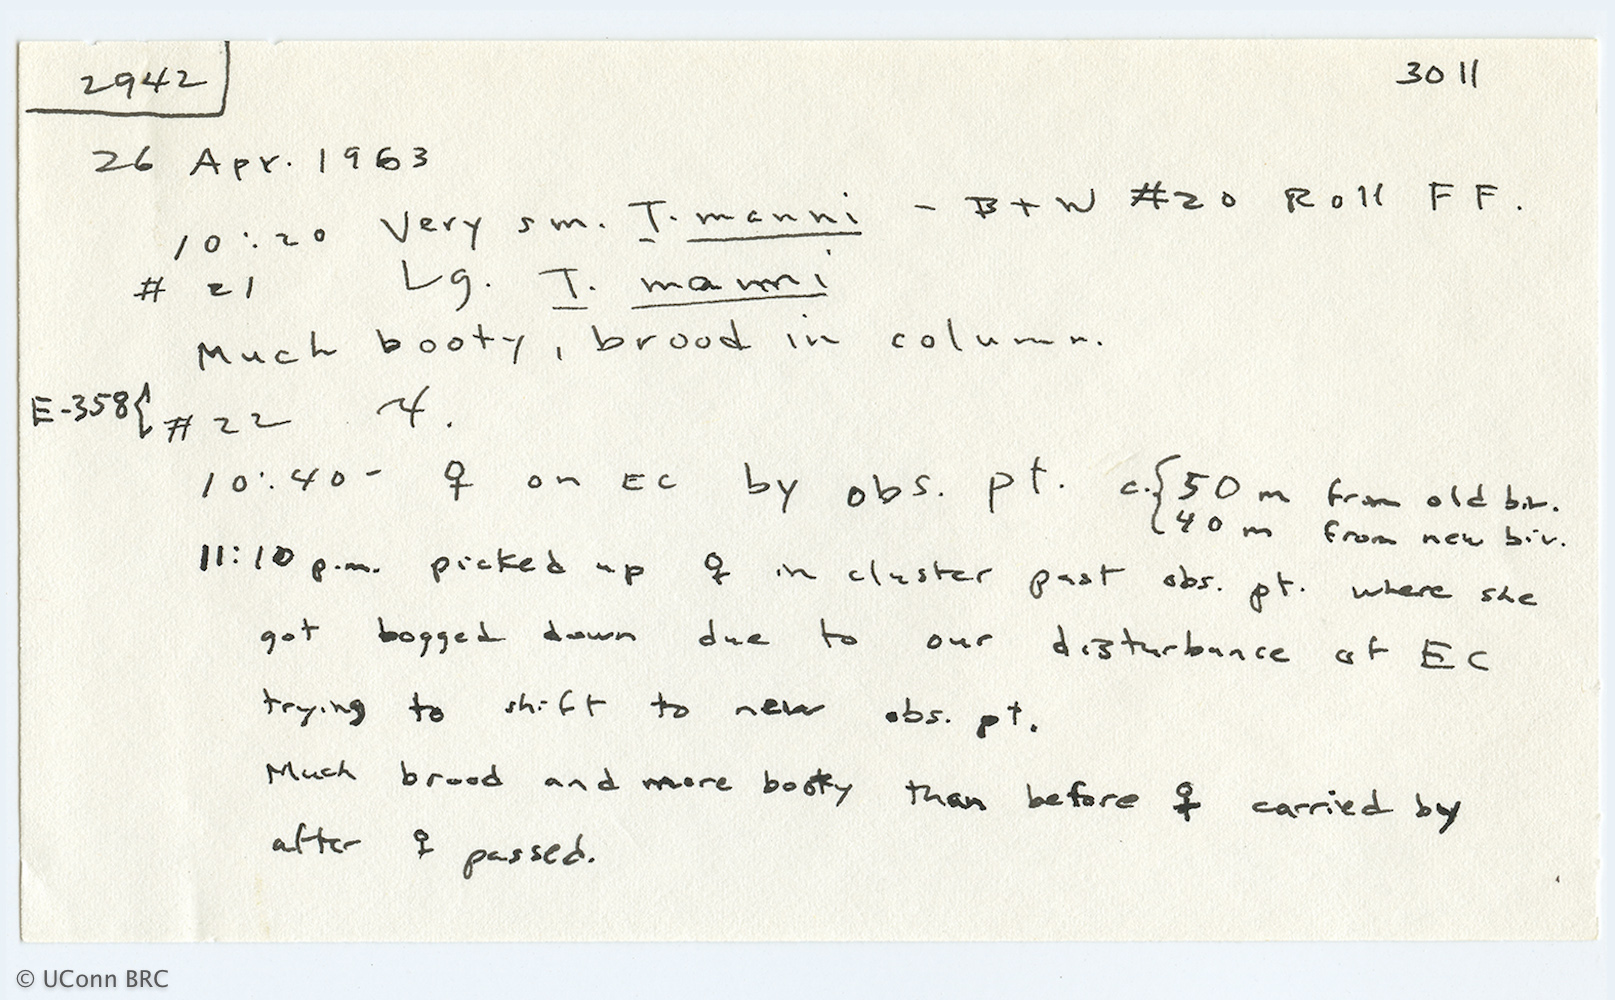 2942
3011
26 Apr. 1963
10:20 Very sm. T. manni - B+W #20 Roll FF.
# 21 Lg. T. manni
Much booty, brood in column.
E-358 { # 22 ".
10:40- ♀ on EC by obs. pt. c. { 50 m from old biv.
40 m from new biv.
11:10 p.m. picked up ♀ in cluster past obs. pt. where she
got bogged down due to our disturbance at EC
trying to shift to new obs. pt.
Much brood and more booty than before ♀ carried by
after ♀ passed.
© UConn BRC